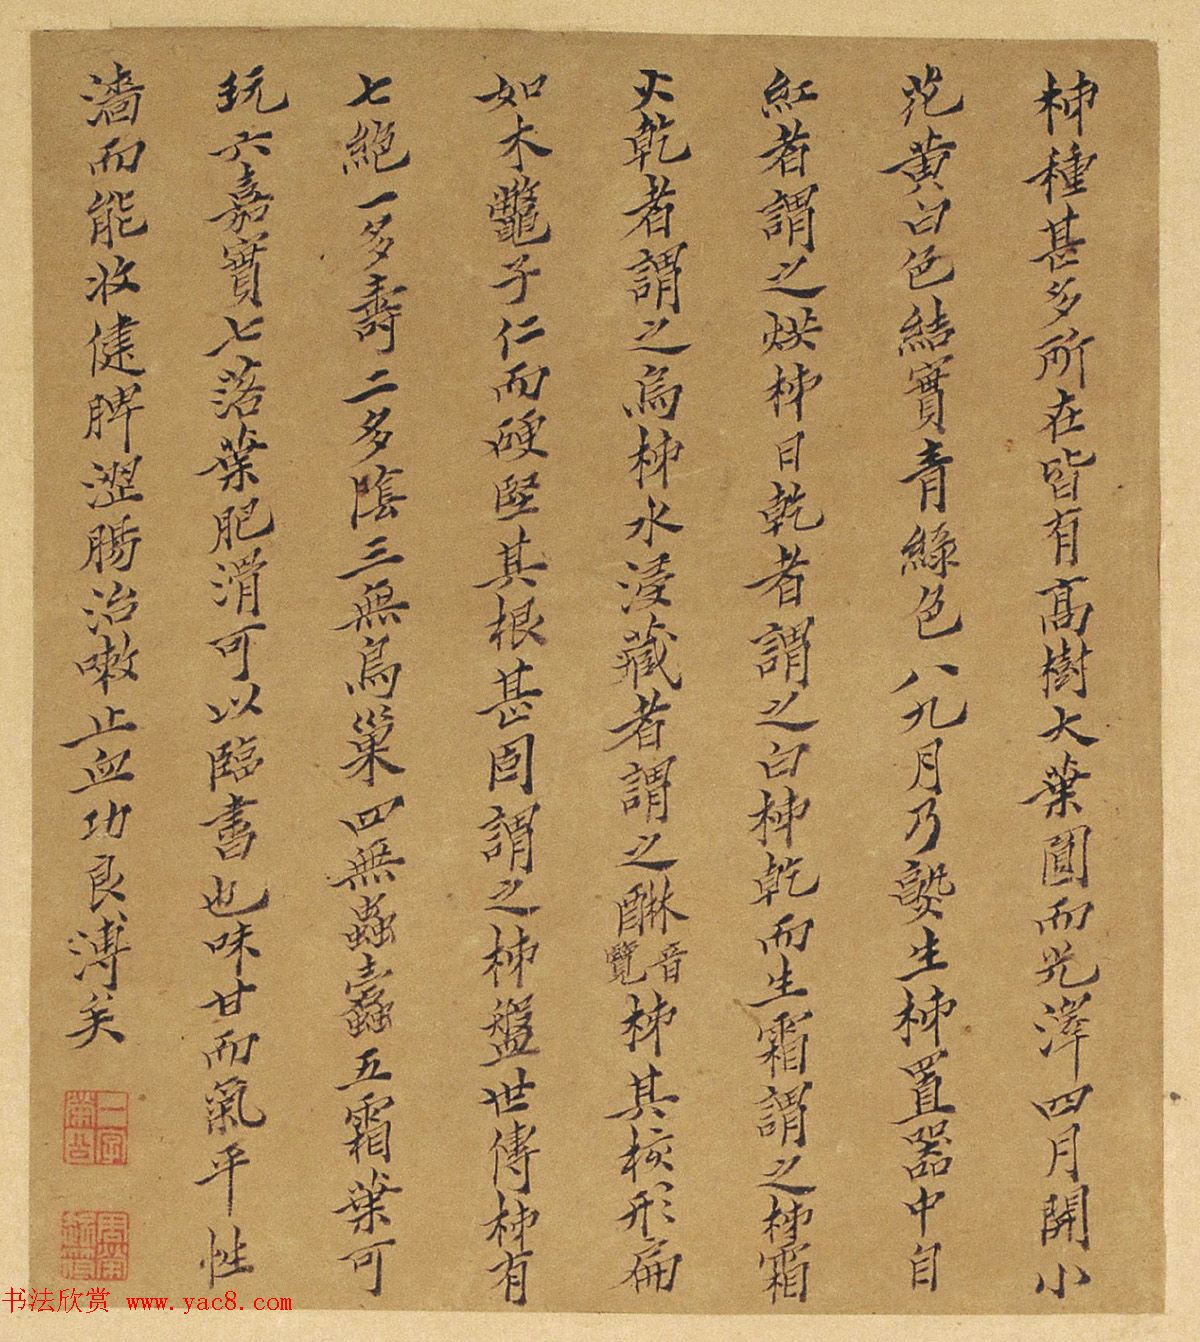 柿種甚多所在皆有高樹大葉圓而光澤四月開小
花黃白色結實青綠色八九月乃熟生柿置器中自
紅者謂之烘柿日乾者謂之白柿乾而生霜謂之柿霜
火乾者謂之烏柿水浸藏者謂之醂音覽柿其核形扁
如木鼈子仁而硬堅其根甚固謂之柿盤世傳柿有
七絕一多壽二多陰三無鳥巢四無蟲蠹五霜葉可
玩六嘉實七落葉肥滑可以臨書也味甘而氣平性
濇而能收健脾澀腸治嗽止血功良溥矣
书法欣赏 www.yac8.com